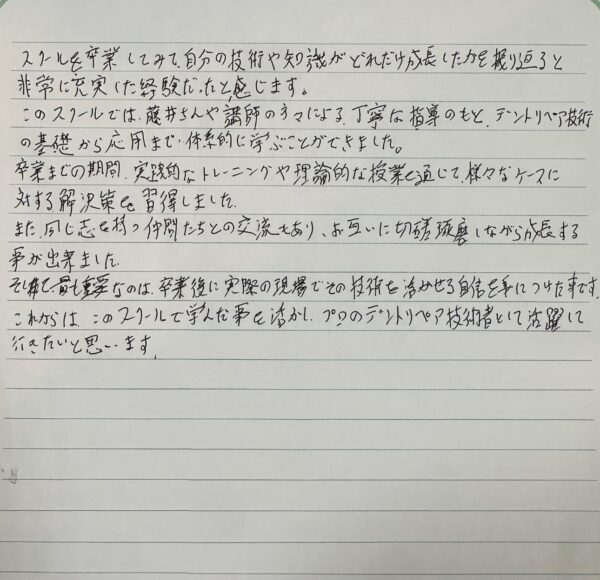 スクールを卒業してみて、自分の技術や知識がどれだけ成長したかを振り返ると
非常に充実した経験だったと感じます。
このスクールでは、藤井さんや講師の方々による、丁寧な指導のもと、デントリペア技術
の基礎から応用まで、体系的に学ぶことができました。
卒業までの期間、実践的なトレーニングや理論的な授業を通じて、様々なケースに
対する解決策を習得しました。
また、同じ志を持つ仲間たちとの交流もあり、お互いに切磋琢磨しながら成長する
事が出来ました。
そして最も重要なのは、卒業後に実際の現場でその技術を活かせる自信を手につけた事です。
これからは、このスクールで学んだ事を活かし、プロのデントリペア技術者として活躍して
行きたいと思います。